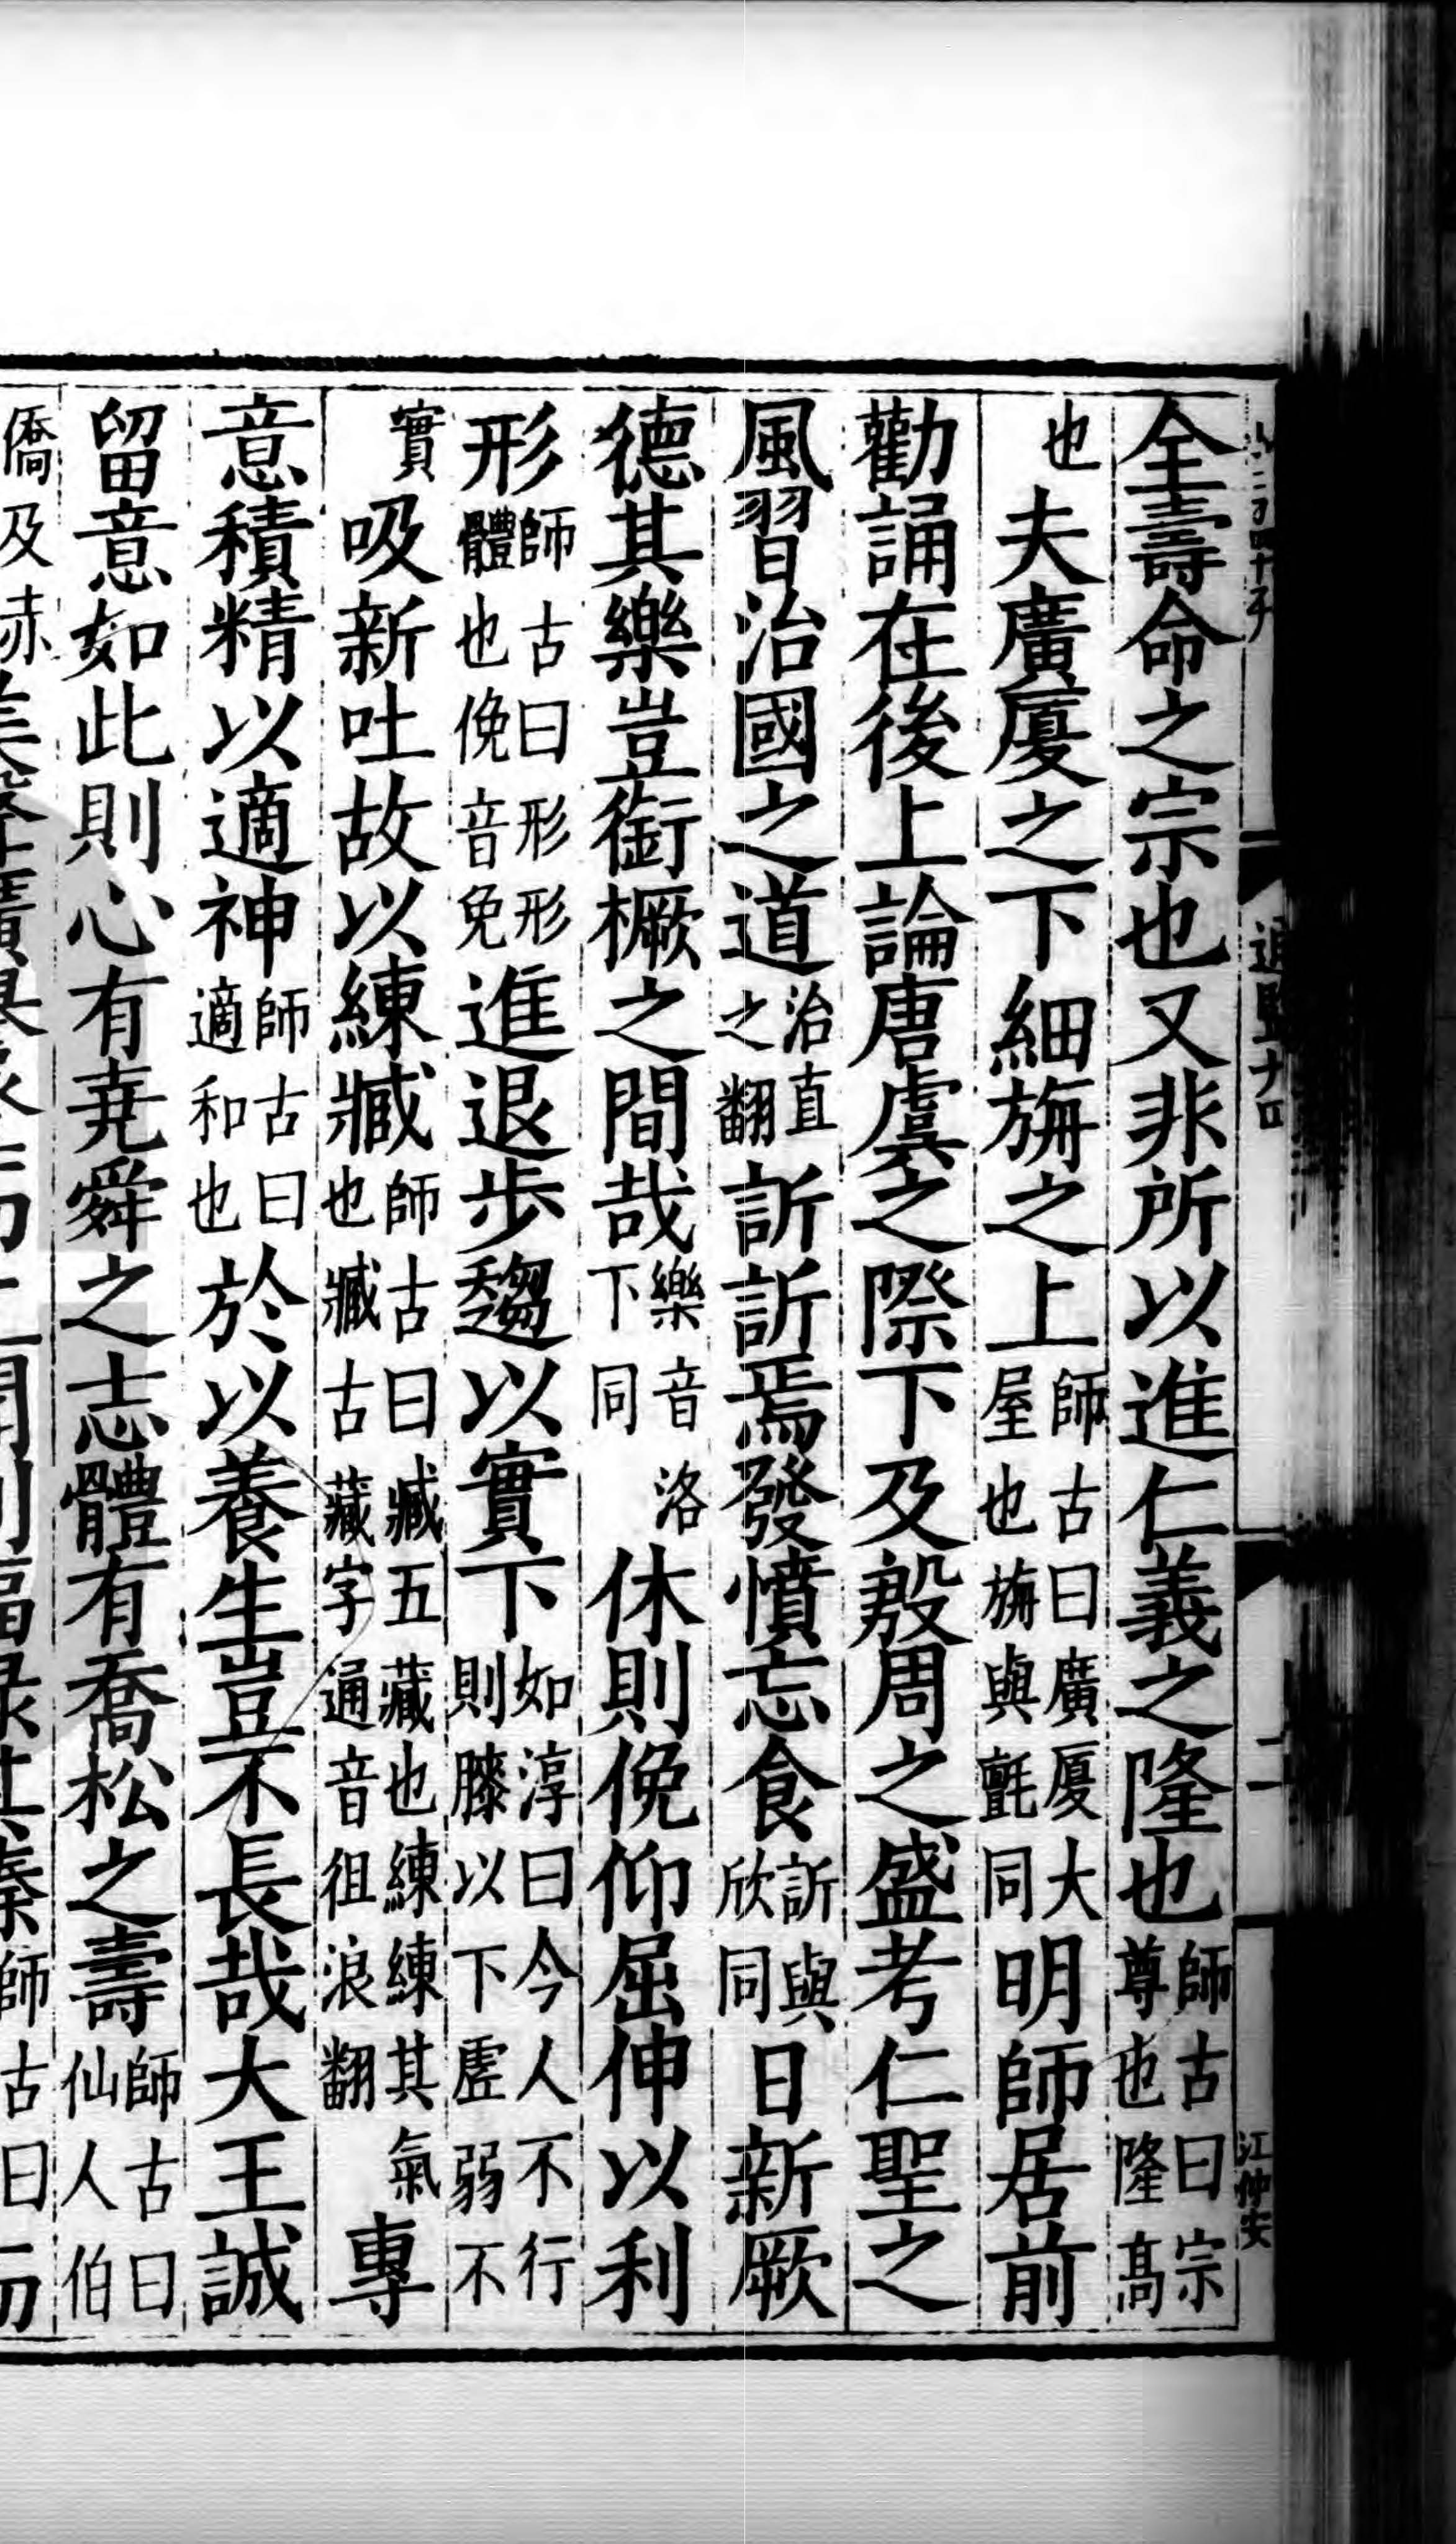 全壽命之宗也又非所以進仁義之隆也師古曰宗尊也隆髙
也夫廣廈之下細旃之上師古曰廣廈大屋也旃與氈同明師居前
勸誦在後上論唐虞之際下及殷周之盛考仁聖之
風習治國之道治直之翻訢訢焉發憤忘食訢與欣同日新厥
德其樂豈銜橛之間哉樂音洛下同休則俛仰屈伸以利
形師古曰形形體也俛音免進退步趨以實下如淳曰今人不行則膝以下虛弱不
實吸新吐故以練臧師古曰臧五藏也練練其氣也臧古藏字通音徂浪翻專
意積精以適神師古曰適和也於以養生豈不長哉大王誠
留意如此則心有堯舜之志體有喬松之壽師古曰仙人伯
僑及赤
江仲安
二